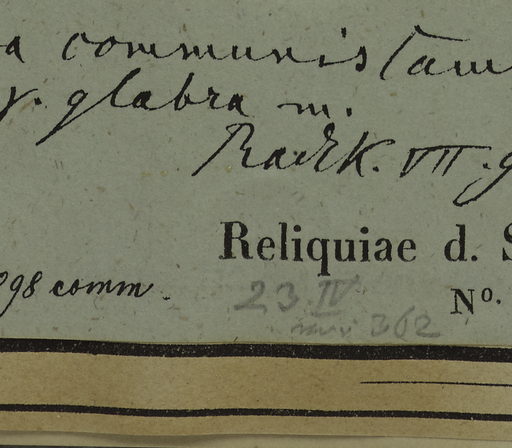 a communis Lam
γ. glabra m.
Radlk. VII. 9
Reliquiae d. S
98 comm.
23 IV
Nº.
362